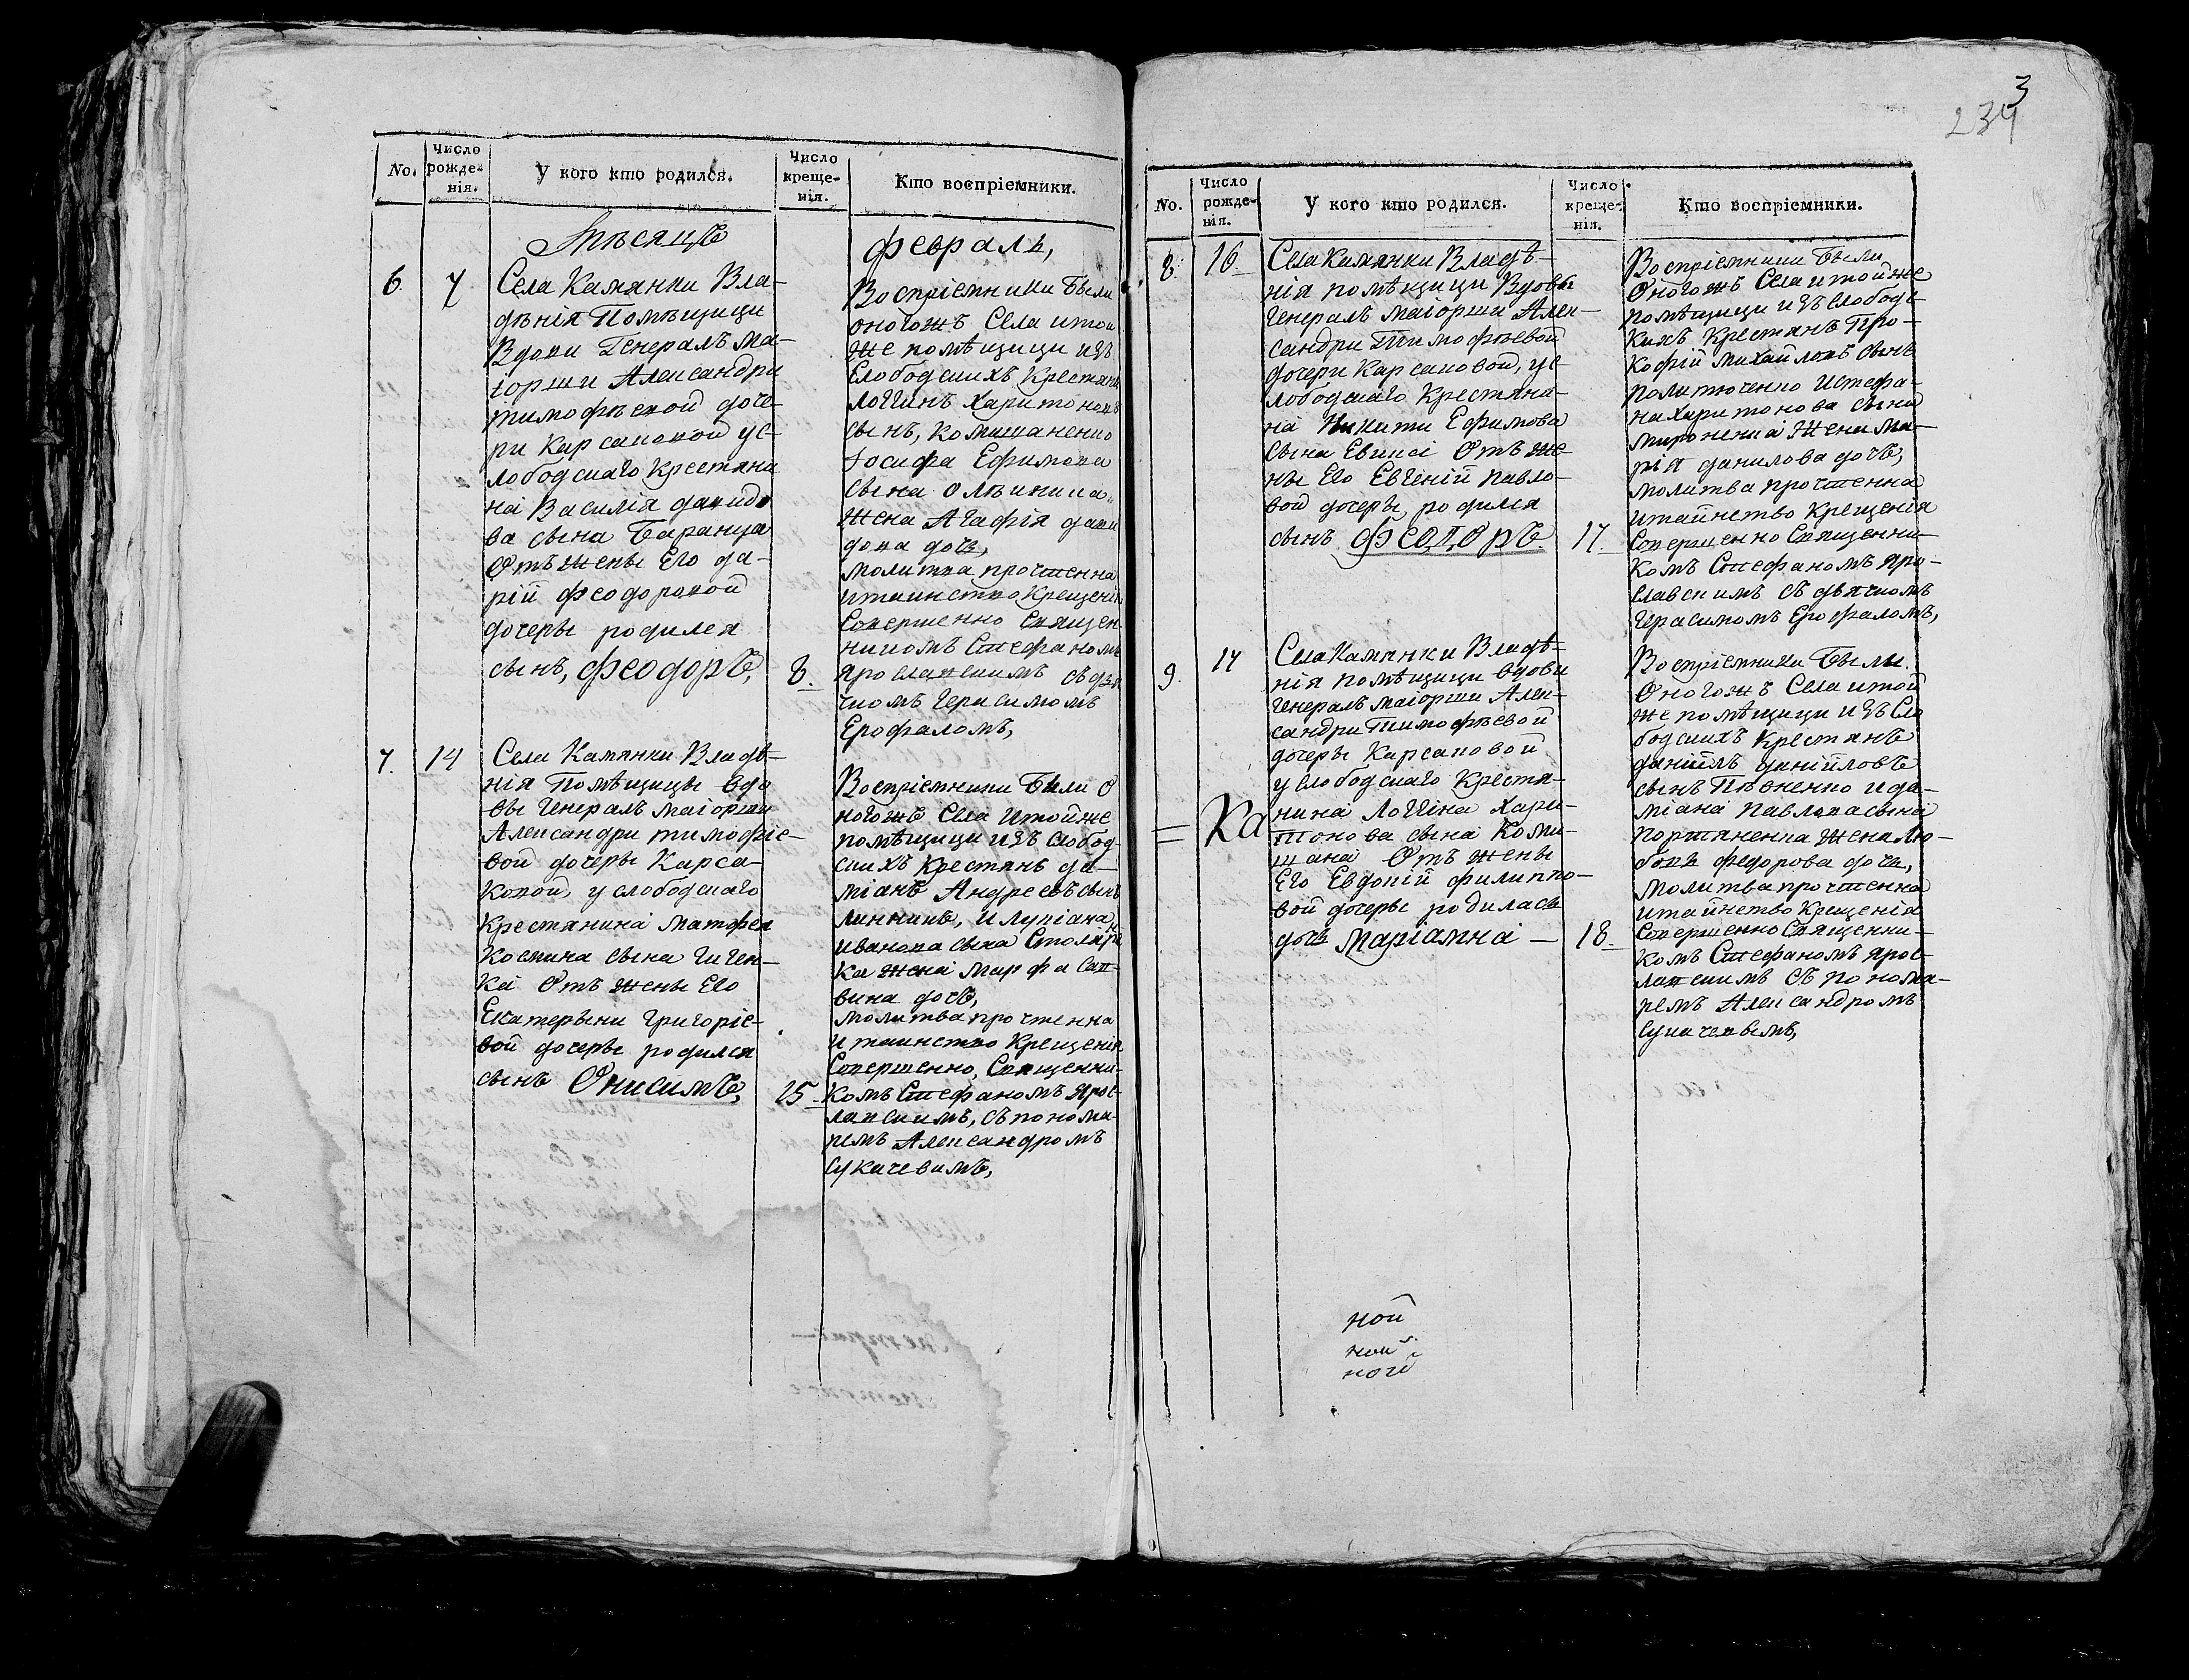 3
234
No.
Число рожде-нія.
У кого кто родился.
Число креще-нія.
Кто воспріемники.
Мѣсяцъ
февраль,
6.
7
Села Камянки Вла-
дѣнія Помѣщици
Вдови Генералъ ма-
іорши Александри
тимофѣевой доче-
ри Карсаковой ус-
лободскаго Крестяни
на Василія давидо
ва сына Баранца
Отъ жены Его да-
рій феодоровой
дочеры родился
сынъ, феодоръ,
8.
Воспріемники были
оногожъ Села итой
же помѣщици изъ
Слободскихъ Крестянъ
Логгинъ Харитоновъ
сынъ, Комишаненко
Іосифа Ефимова
сына
жена Агафія дави
дова дочь,
молитва прочтенна
итаинство Крещенія
Совершенно Священ
никомъ Стефаномъ
Ярославскимъ съ дья
чкомъ Герасимомъ
Ерофаломъ,
7.
14
Села Камянки Владѣ-
нія Помѣщицы вдо
вы Генералъ маіорши
Александри тимофіе-
вой дочеры Карса-
ковой, услободскаго
Крестянина матфея
Космина сына Гиген-
ка Отъ жены Его
Екатерыни Григоріе-
вой дочеры родился
сынъ Онисимъ,
15
Воспріемники были О
ногожъ Села Итойже
помѣщици изъ слобод-
скихъ Крестянъ да-
міанъ Андреевъ сынъ
Линникъ, и Лукіана
Иванова сына Столяри
ка жена Марфа Сав-
вина дочь,
молитва прочтенна
и таинство Крещенія
Совершенно, Священни-
комъ Стефаномъ Ярос-
лавскимъ, съ понома-
ремъ Александромъ
Сукачевимъ,
No.
Число рожде-нія.
У кого кто родился.
Число креще-нія.
Кто воспріемники.
8.
16
Села Камянки Владѣ-
нія помѣщици Вдовы
Генералъ маіорши Алек-
сандри Тимофѣевой
дочери Карсаковой, ус-
лободскаго Крестяни-
на Никити Ефимова
сына Отъ же-
ны Его Евгеній павло-
вой дочеры родился
сынъ ФЕОДОРЪ
17.
Воспріемники были
Оногожъ Села итойже
помѣщици изъ слободс-
кихъ Крестянъ Про-
кофій михайловъ сынъ
политюченко Истефа-
на харитонова сына
мироненка жена ма-
рія данилова дочь,
молитва прочтенна
итайнство Крещенія
Совершенно Священни-
комъ Стефаномъ Яро-
славскимъ съ дьячкомъ
Герасимомъ Ерофаломъ,
9.
17
Села Камянки Владѣ-
нія помѣщици вдови
генералъ маіорши Алек-
сандри Тимофѣевой
дочеры Карсаковой
услободскаго Крестя-
нина Логгина Хари-
тонова сына Коми-
шана Отъ жены
Его Евдокій филиппо-
вой дочеры родилась
дочь Маріамна —
= Ка
18.
Воспріемники были
Оногожъ Села итой
же помѣщици изъ Сло
бодскихъ Крестянъ
даніилъ даніиловъ
сынъ Пѣвненко ида-
міана Павлова сына
портяненка жена Лю-
бовь федорова дочь,
Молитва прочтенна
итайнство Крещенія
Совершенно Священни-
комъ Стефаномъ Ярос-
лавскимъ съ понома-
ремъ Александромъ
Сукачевымъ,
ной
ной
ной